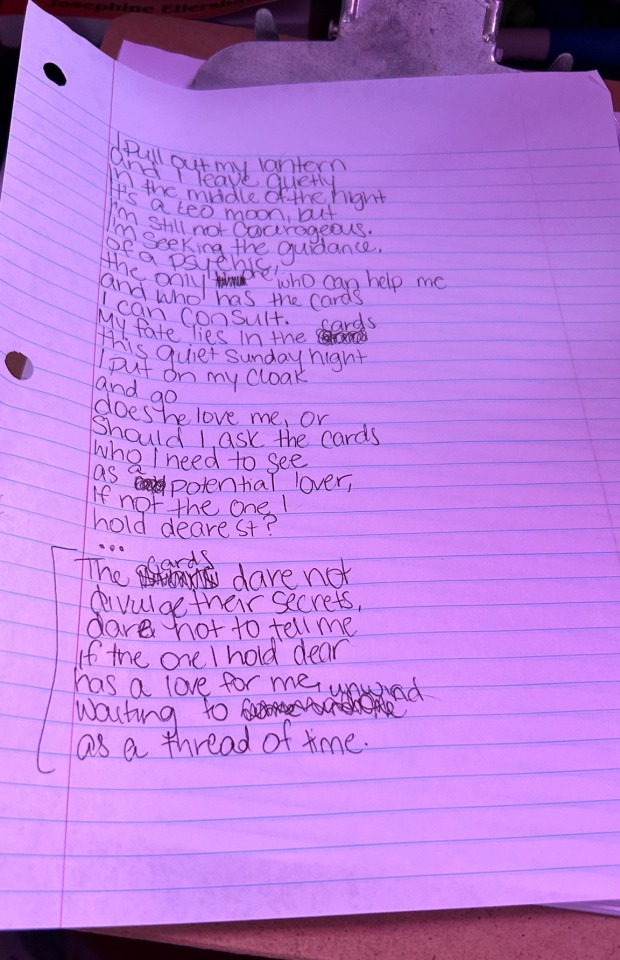 Josephine Ellersha
I pull out my lantern
and I leave quietly
in the middle of the night
It's a Leo moon, but
I'm still not courageous.
I'm seeking the guidance,
of a psychic,
the only one, who can help me
and who has the cards
I can consult.
My fate lies in the cards
this quiet Sunday night
I put on my cloak
and go
does he love me, or
should I ask the cards
who I need to see
as a potential lover,
if not the one I
hold dearest?
...
The cards dare not
divulge their secrets,
dare not to tell me
if the one I hold dear
has a love for me,
waiting to unwind
as a thread of time.